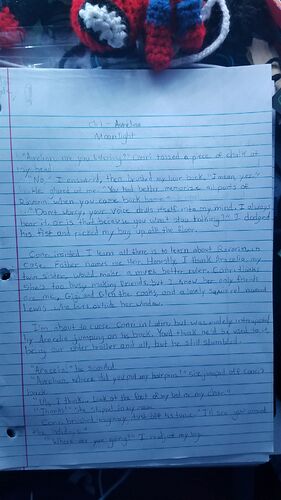 Ch 1 - Aurelian
Moonlight
"Aurelian, are you listening?" Conri tossed a piece of chalk at
my head.
"No." I answered, then brushed my hair back, "I mean, yes."
He glared at me. "You had better memorize all parts of
when you come back home."
"Don't worry, your voice drills itself into my mind, I always
hear it, or is that because you won't stop talking?" I dodged
his fist and picked my bag up off the floor.
Conri insisted I learn all there is to learn about in
case Father names me heir. Honestly, I think Aracelia, my
twin sister, would make a much better ruler. Conri thinks
she's too busy making friends, but I know her only friends
are me, Gigi and Glen the cooks, and a lovely squirrel named
Lewis who lives outside her window.
I'm about to curse Conri in Latin but was rudely interrupted
by Aracelia jumping on his back. You'd think he'd be used to it
being our older brother and all, but he still stumbled.
"Aracelia!" he scolded.
"Aurelian, where did you put my hairpins?" She jumped off Conri's
back.
"Uh, I think, look at the foot of my bed on my chair."
"Thanks!" she slipped in my room.
Conri brushed imaginary dust off his tunic. "I'll see you around
the
"Where are you going?" I my bag.